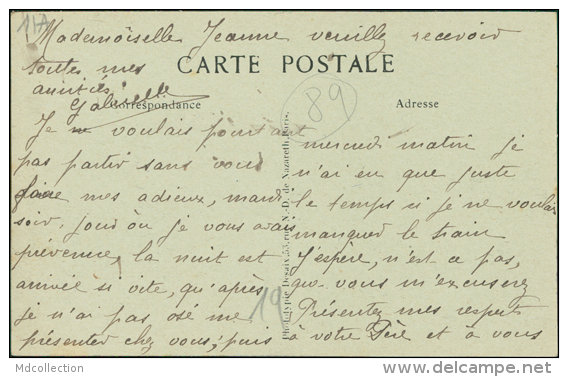 11A
Mademoiselle Jeanne veuillez recevoir
toutes mes
CARTE POSTALE
amitiés
Gabrielle
Correspondance
89
Adresse
Je ne voulais pourtant
pas partir sans vous
faire mes adieux, mardi
soir, jour où je vous avais
prévenue, la nuit est
arrivée si vite, qu'après
je n'ai pas osé me
présenter chez vous; puis
19
Phototypie Desaix, 53, rue N.-D. de Nazareth, Paris.
mercredi matin je
n'ai eu que juste
le temps si je ne voulais
manquer le train
J'espère, n'est ce pas,
que vous m'excuserez
Présentez mes respects
à votre Père et à vous
Mdcollection
www.delcampe.net